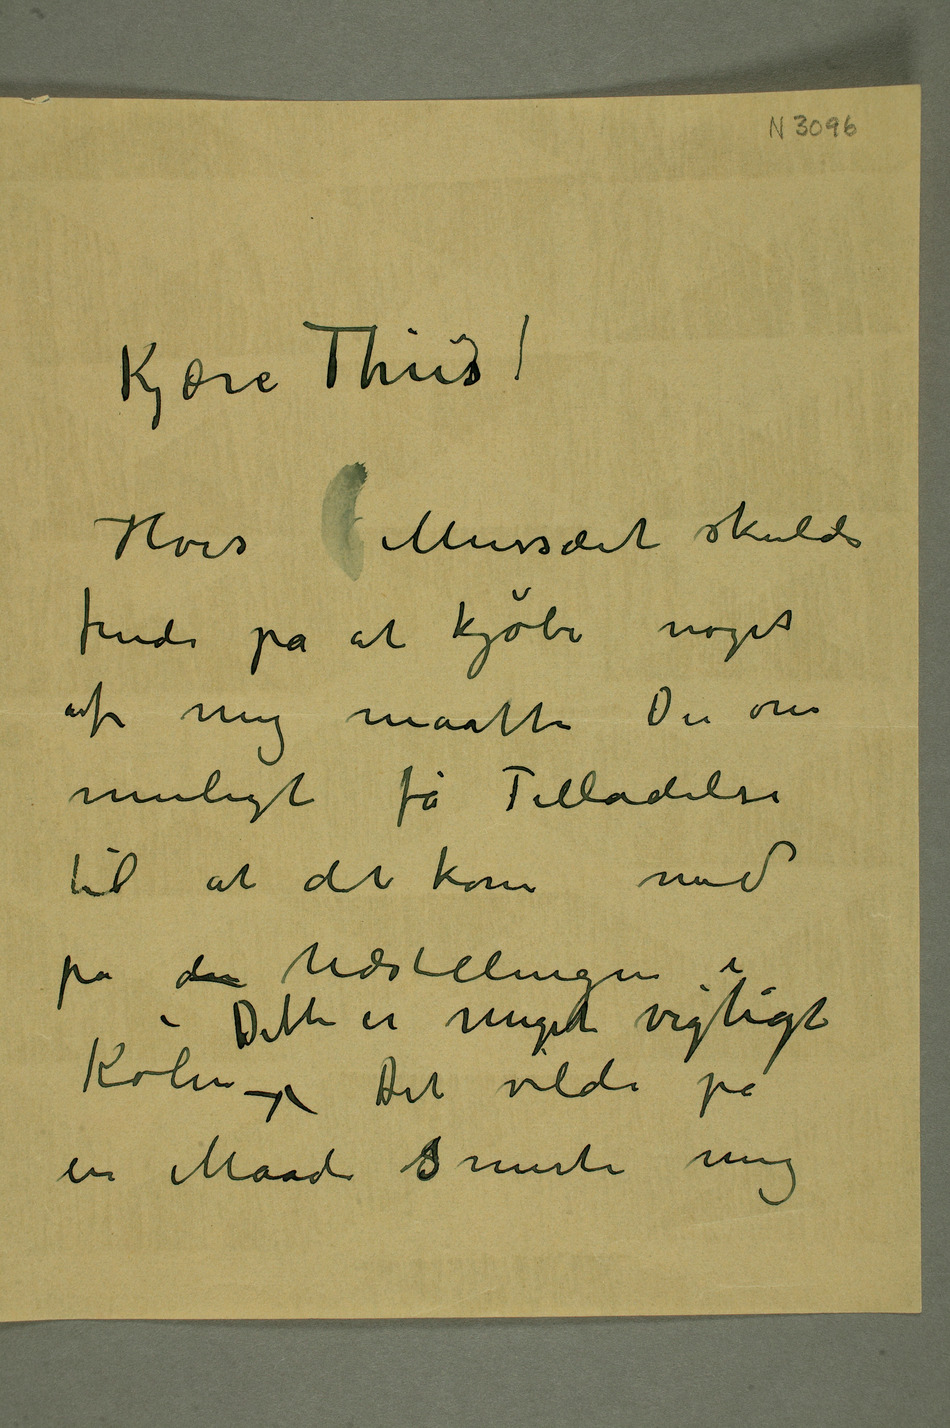 N 3096
Kjære Thiis!
Hvis Mussæet skulde
finde på at kjöbe noget
af mig maatte Du om
muligt få Tilladelse
til at det kom med
på den Udstillingen i
Dette er meget vigtigt
Köln – Det vilde på
en Maade smerte mig